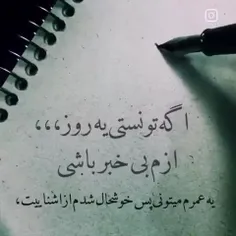 اگه تونستی یه روز،،،
ازم بی خبر باشی
یه عمرم میتونی پس خوشحال شدم از اشناییت،